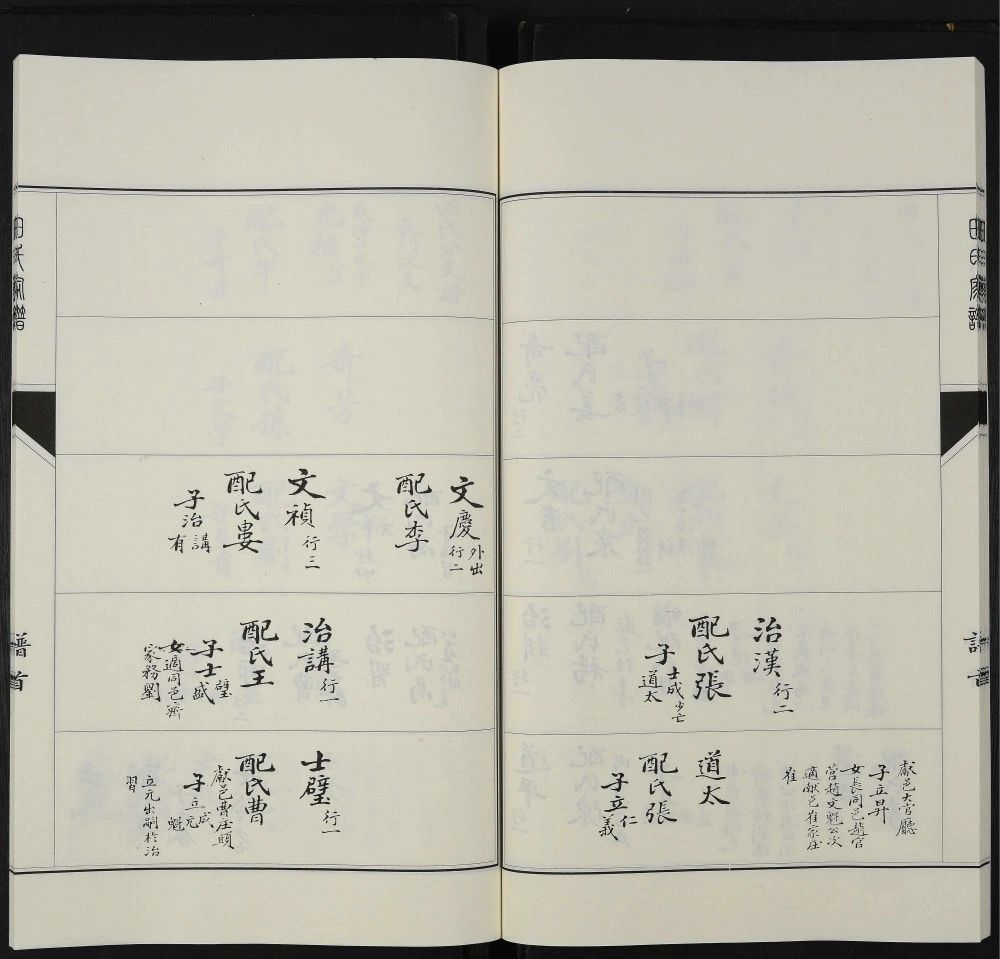 田氏家譜
譜首
治漢 行二
配氏張
子 士成少亡
道太
獻邑大官廳
子立昇
女長同邑趙官
營趙文魁公次
適獻邑崔家庄
崔
道太
配氏張
子立仁
義
文慶 外出
行二
配氏李
文禎 行三
配氏婁
子治講
有
治講 行一
配氏王
子士璧
盛
女適同邑齊
家務劉
士璧 行一
配氏曹
獻邑曹庄頭
子立元
成
魁
立元出嗣於治
習
田氏家譜
譜首